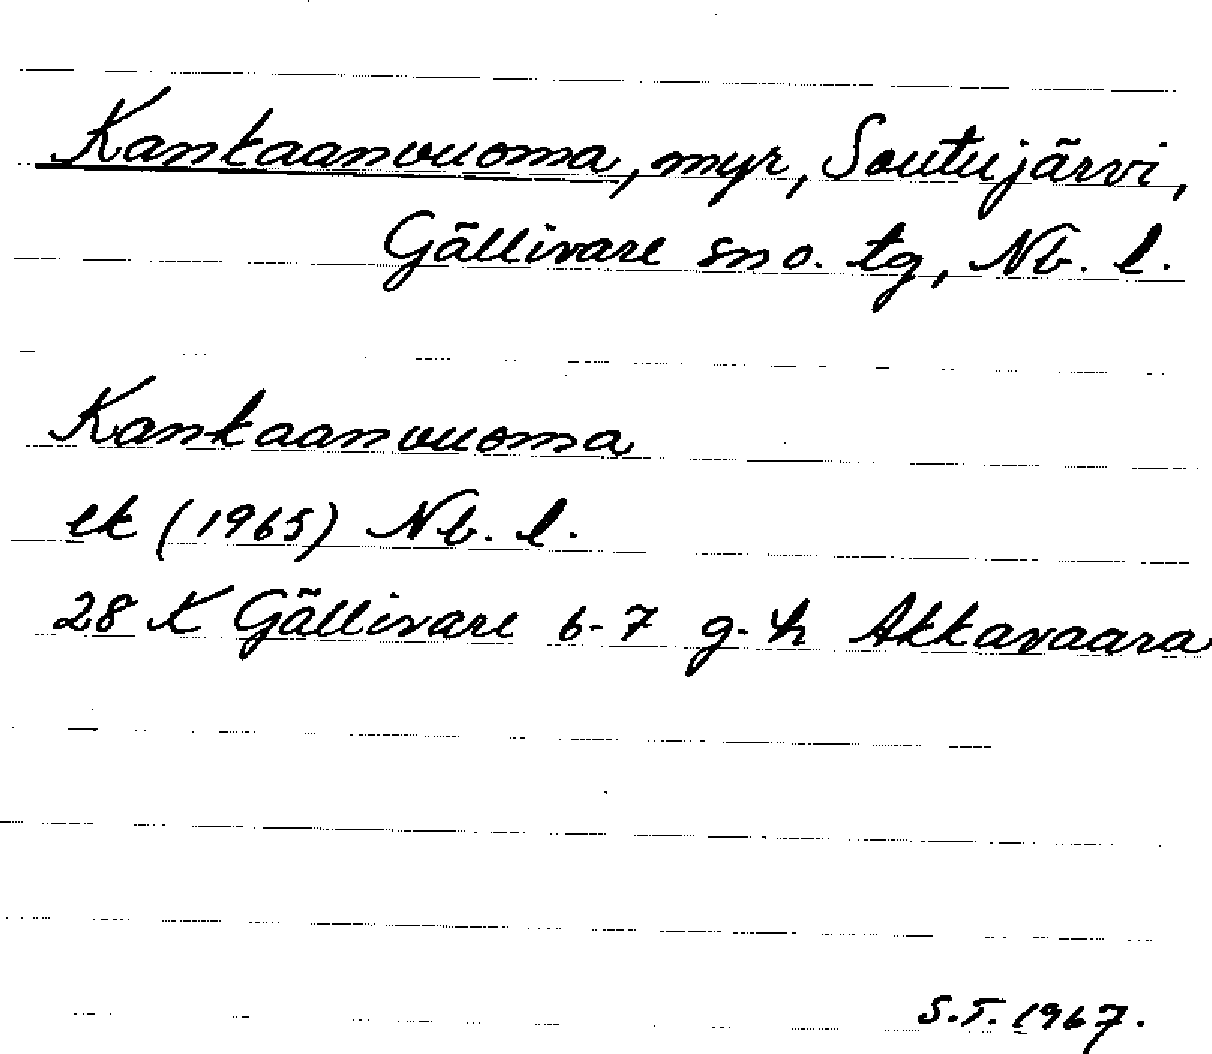 Kankaanvuoma, myr, Soutujärvi,
Gällivare sn o. tg, Nb. l.
Kankaanvuoma
ek (1965) Nb. l.
28 K Gällivare 6-7 g-h Akkavaara
S.T. 1967.